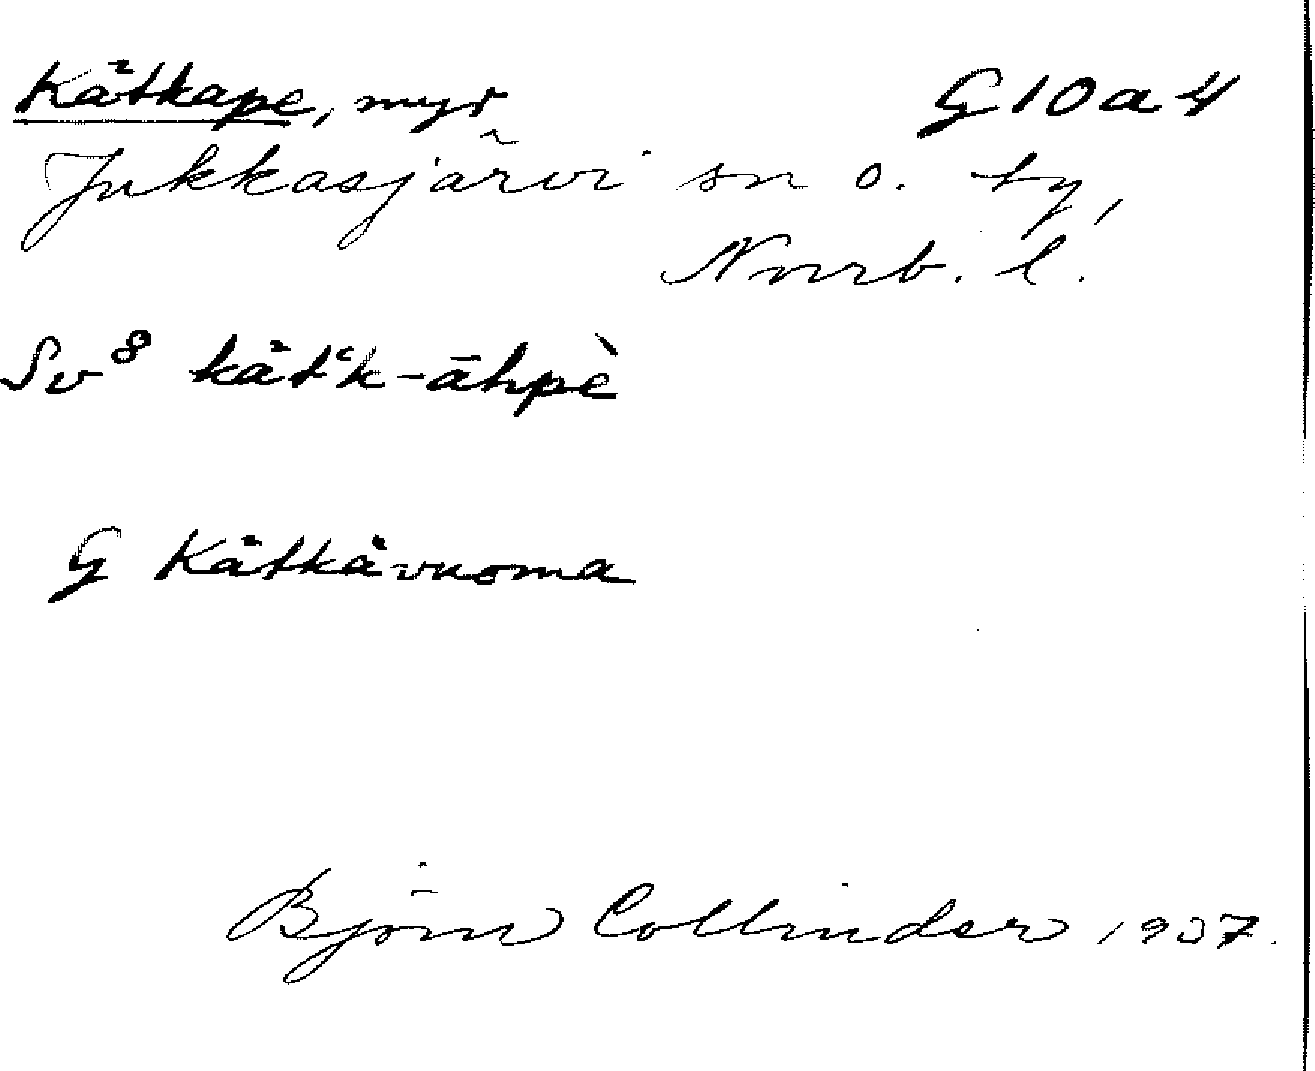 Kätkape, myr G10a4
Jukkasjärvi sn o. ty,
Norrb. l.
Sv 8 kät‘k-āhpè
G Kätkävuoma
Björn Collinder 1937.